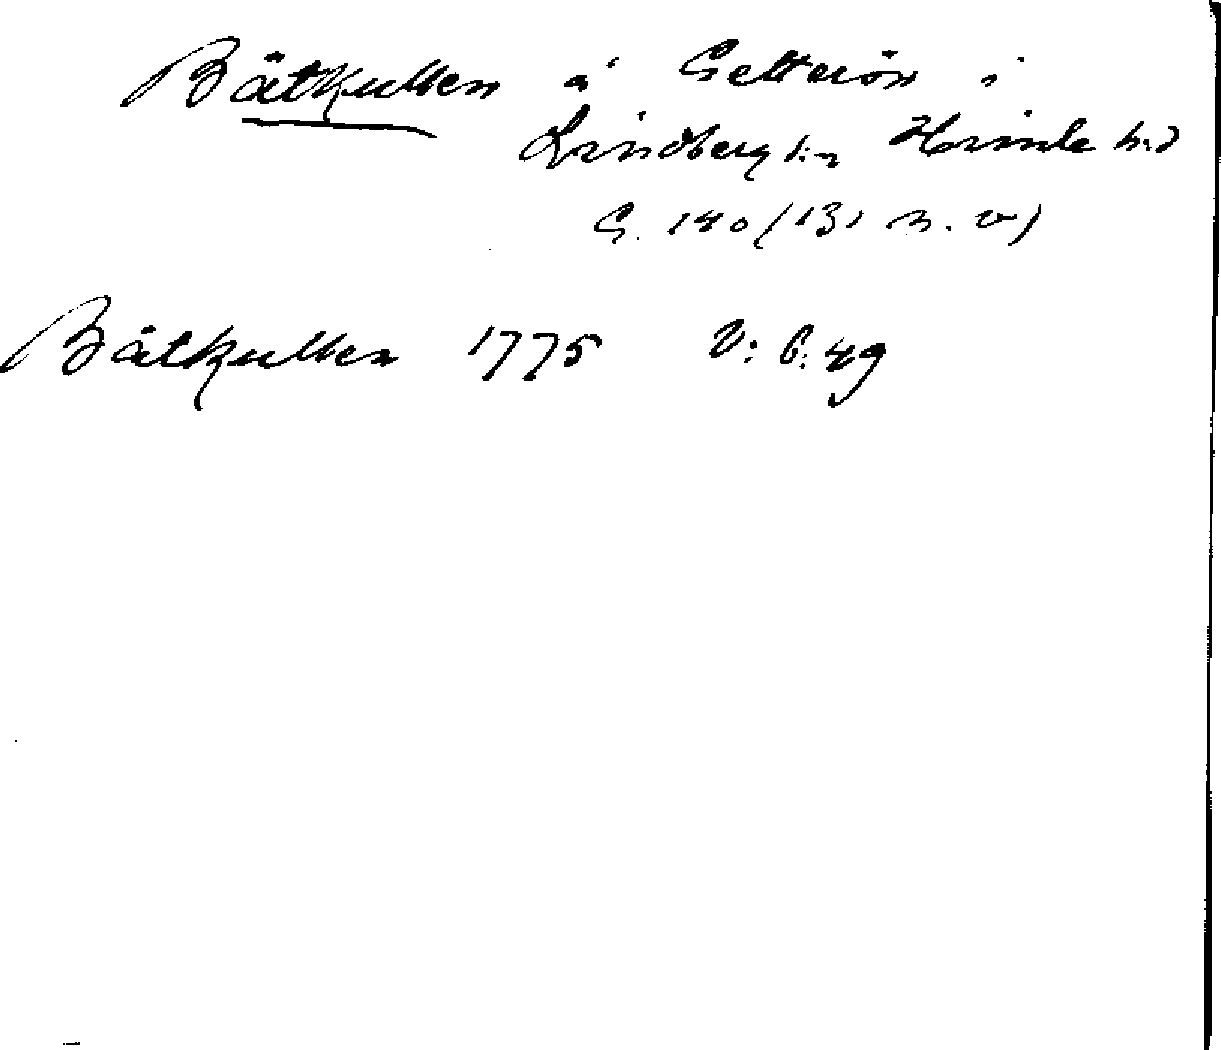 Båtkullen å Getterön i
Lindberg s:n Himle h:d
G. 140 (131 n. v)
Båtkullen 1775 V: 6: 49